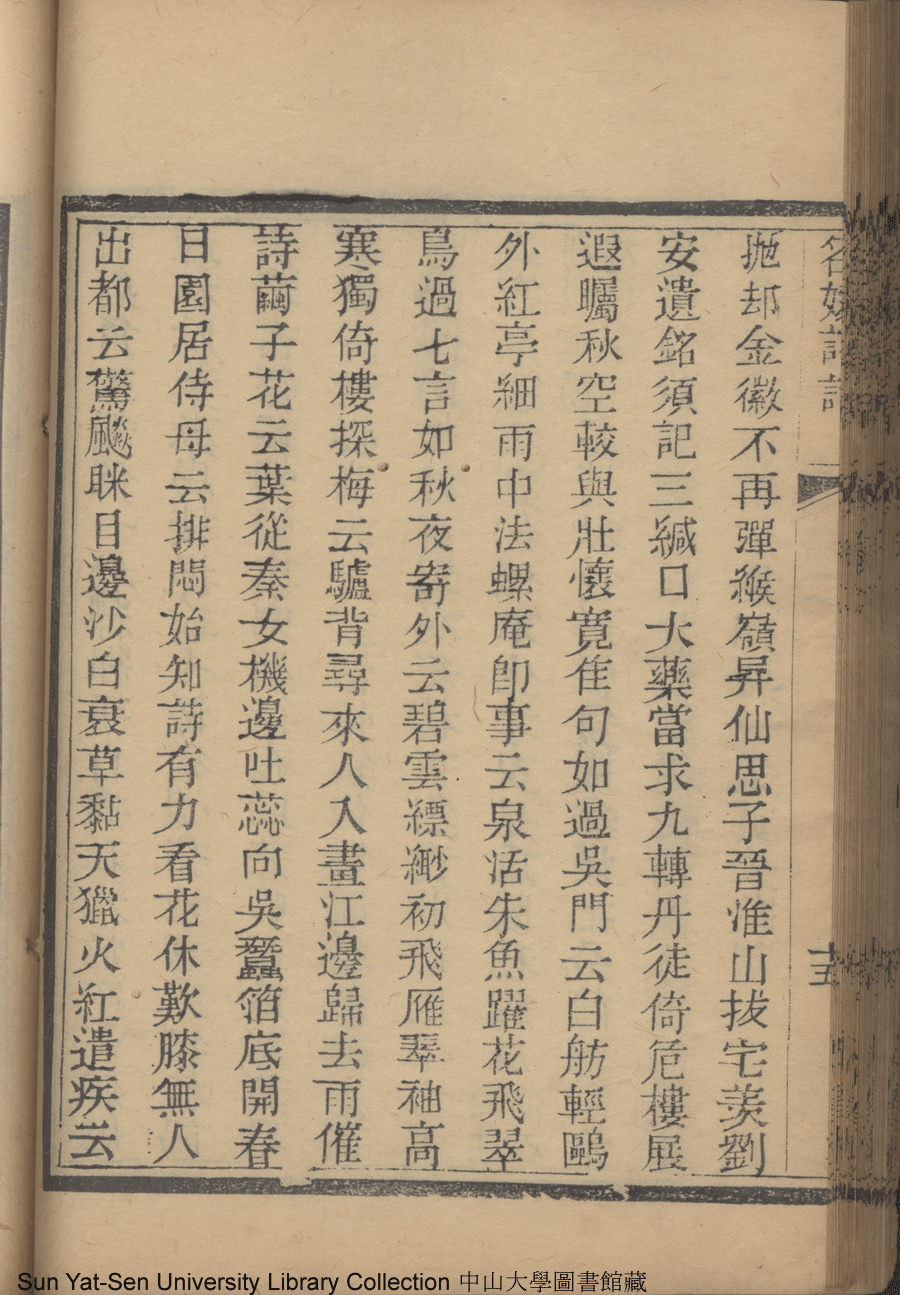 名媛詩話
十五
抛却金徽不再彈緱嶺昇仙思子晉淮山拔宅羡劉
安遺銘須記三緘口大藥當求九轉丹徒倚危樓展
遐矚秋空較與壯懷寬隹句如過吳門云白舫輕鷗
外紅亭細雨中法螺庵卽事云泉活朱魚躍花飛翠
鳥過七言如秋夜寄外云碧雲縹緲初飛雁翠袖高
寒獨倚樓探梅云驢背尋來人入畫江邊歸去雨催
詩繭子花云葉從秦女機邊吐蕊向吳蠶箔底開春
日園居侍母云排悶始知詩有力看花休歎膝無人
出都云驚飈眯目邊沙白衰草黏天獵火紅遣疾云
Sun Yat-Sen University Library Collection 中山大學圖書館藏